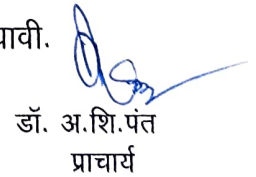 यावी.
डॉ. अ.शि.पंत
प्राचार्य